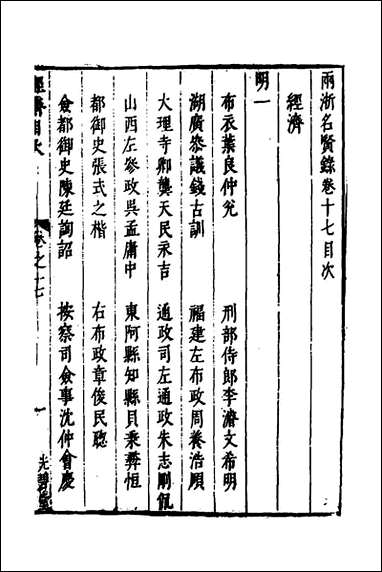 兩浙名賢錄卷十七目次
經濟
明一
布衣葉良仲兊 刑部侍郎李濬文希明
湖廣叅議錢古訓 福建左布政周養浩頤
大理寺卿龔天民永吉 通政司左通政朱志剛侃
山西左叅政吳孟庸中 東阿縣知縣貝秉彝恒
都御史張式之楷 右布政章俊民聦
僉都御史陳廷詢詔 按察司僉事沈仲會慶
經濟目次
卷之十七
一
光碧堂